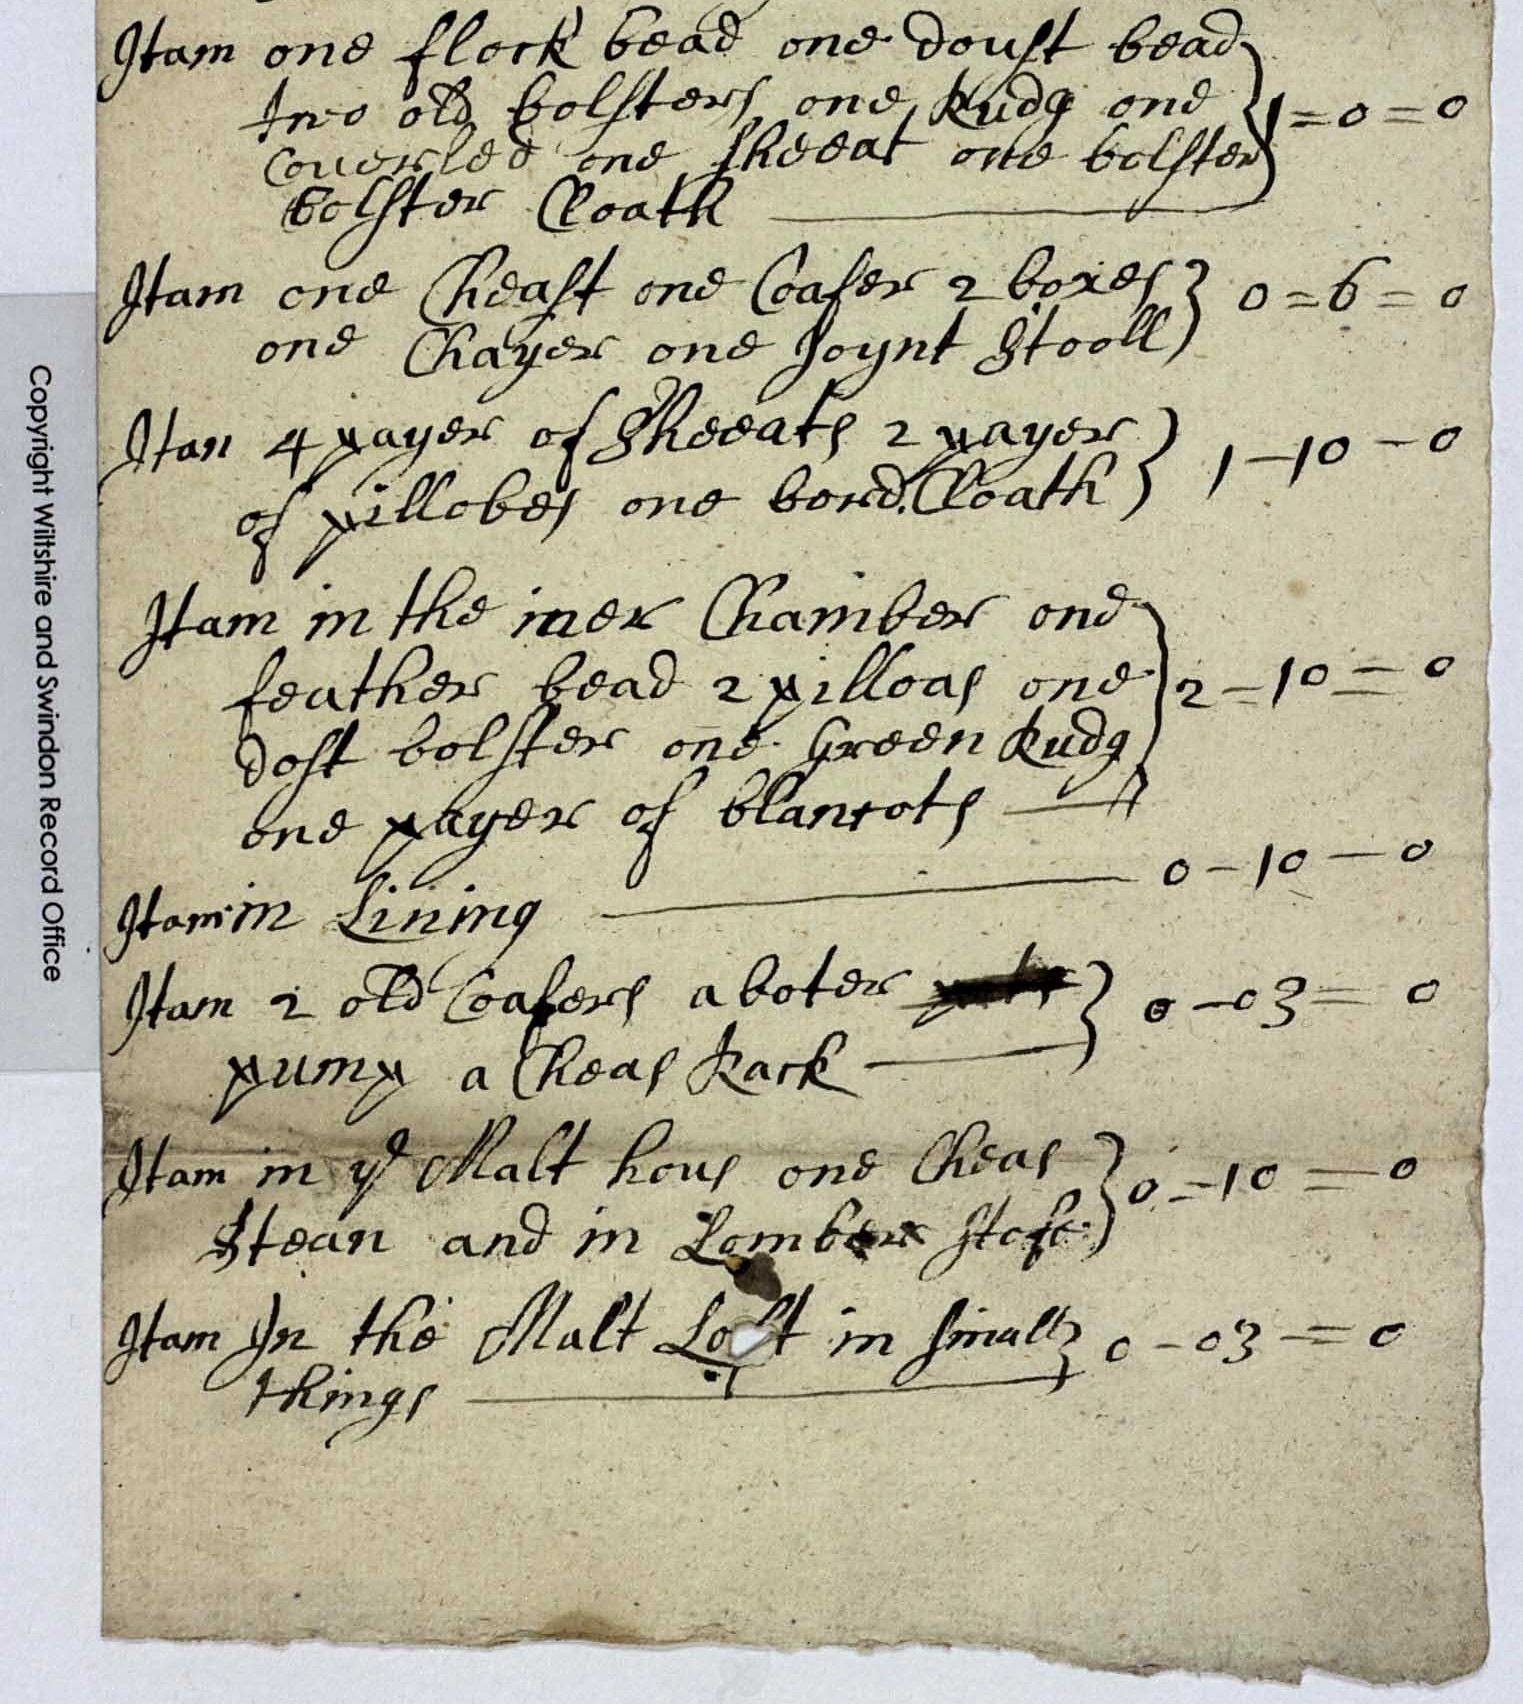 Itam one flock bead one doust bead
two old bolsters one Rudg one
Couerled one sheeat one bolster 1=0=0
bolster Cloath
Itam one Cheast one Coafer 2 boxes 0=6=0
one Chayer one Joynt Stooll
Itan 4 payer of Sheeats 2 payer
of pillobes one bord Cloath 1-10-0
Itam in the iner Chamber one
feather bead 2 pilloas one 2-10=0
dost bolster one Green Rudg
one payer of blancots
Itam in Lining 0-10-0
Itam 2 old Coafers a boter 0-03=0
pump a Cheas Rack
Itam in ye Malt hous one Cheas 0=10=0
Stean and in Lomber stofe
Itam In the Malt Loft in small 0-03=0
things
Copyright Wiltshire and Swindon Record Office